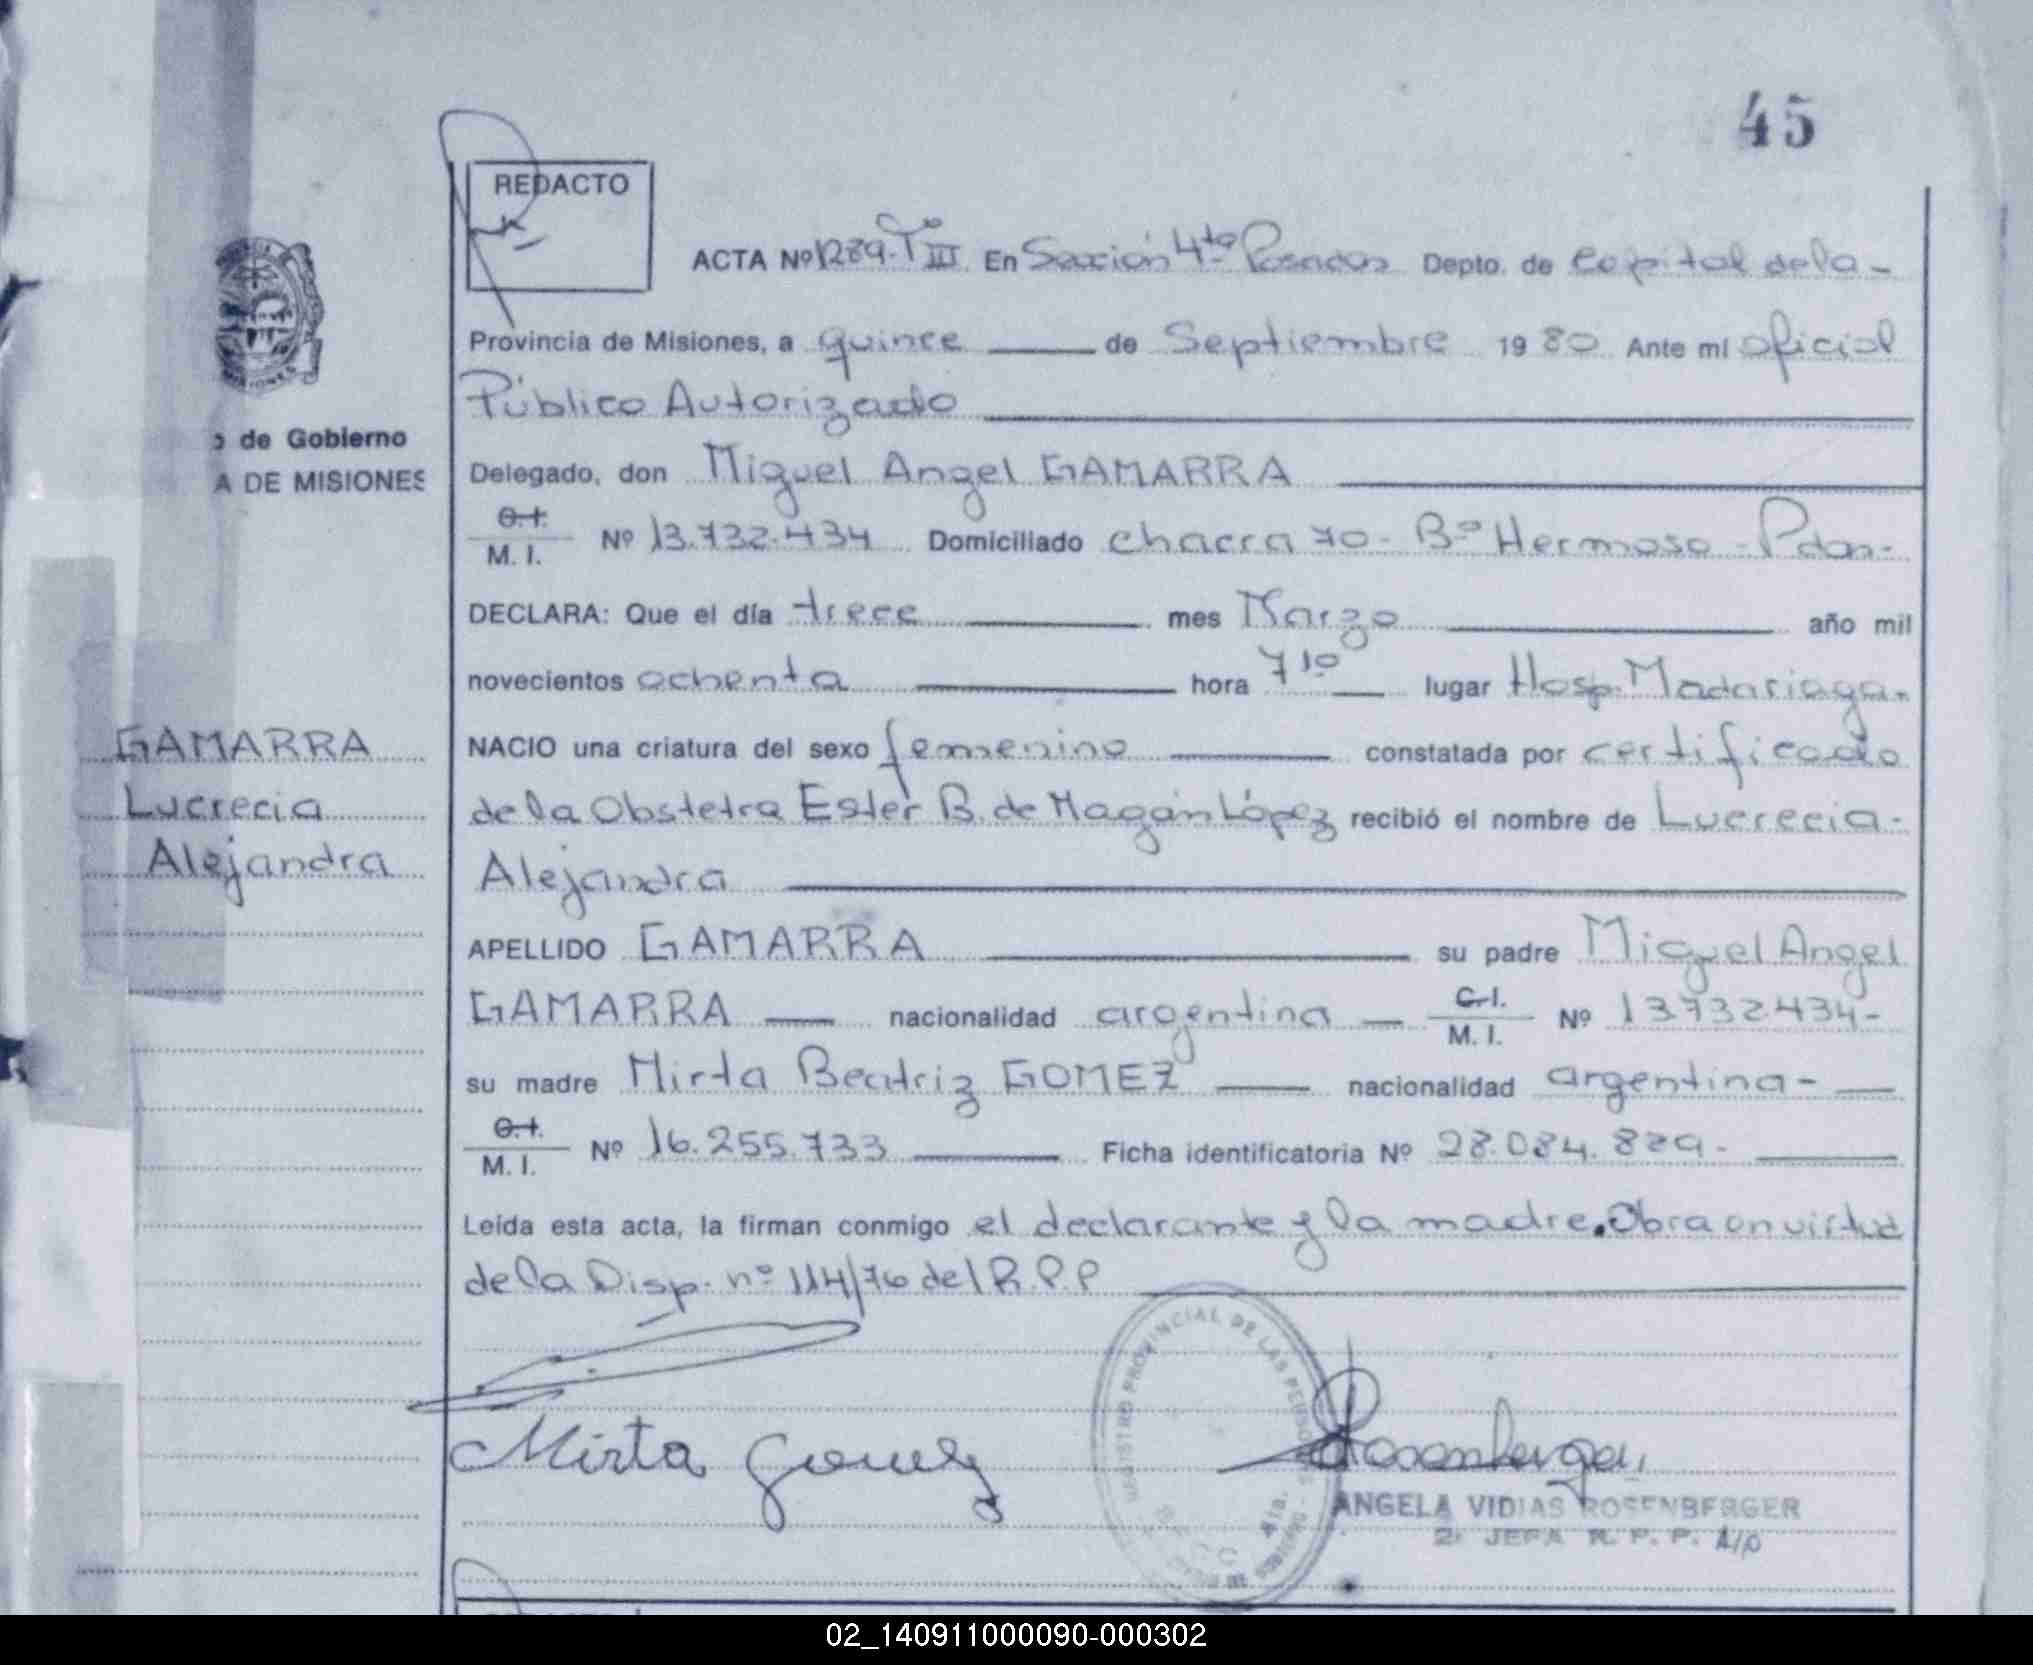 45
REDACTO
ACTA Nº 1289. Tº III En Sección 4ta Posadas Depto. de Capital de la -
Provincia de Misiones, a quince de Septiembre 1980 Ante mi oficial
Público Autorizado
Delegado, don Miguel Angel GAMARRA
C.I. M.I. Nº 13.732.434 Domiciliado chacra 70 - Bº Hermoso - Pdas -
DECLARA: Que el día trece mes Marzo año mil
novecientos ochenta hora 7 10 lugar Hosp. Madariaga.
NACIO una criatura del sexo femenino constatada por certificado
de la Obstetra Ester B. de Magán López recibió el nombre de Lucrecia -
Alejandra
APELLIDO GAMARRA su padre Miguel Angel
GAMARRA nacionalidad argentina C.I. M.I. Nº 13732434 -
su madre Mirta Beatriz GOMEZ nacionalidad argentina -
C.I. M.I. Nº 16.255.733 Ficha identificatoria Nº 28.084.829 -
Leída esta acta, la firman conmigo el declarante y la madre. Obra en virtud
de la Disp. nº 114/76 del R.P.P
Mirta Gomez
Rosenberger
ANGELA VIDIAS ROSENBERGER
2º JEFA R. P. P. A/C
REGISTRO PROVINCIAL DE LAS PERSONAS
4ta.
MISIONES
o de Gobierno
A DE MISIONES
GAMARRA
Lucrecia
Alejandra
02_140911000090-000302